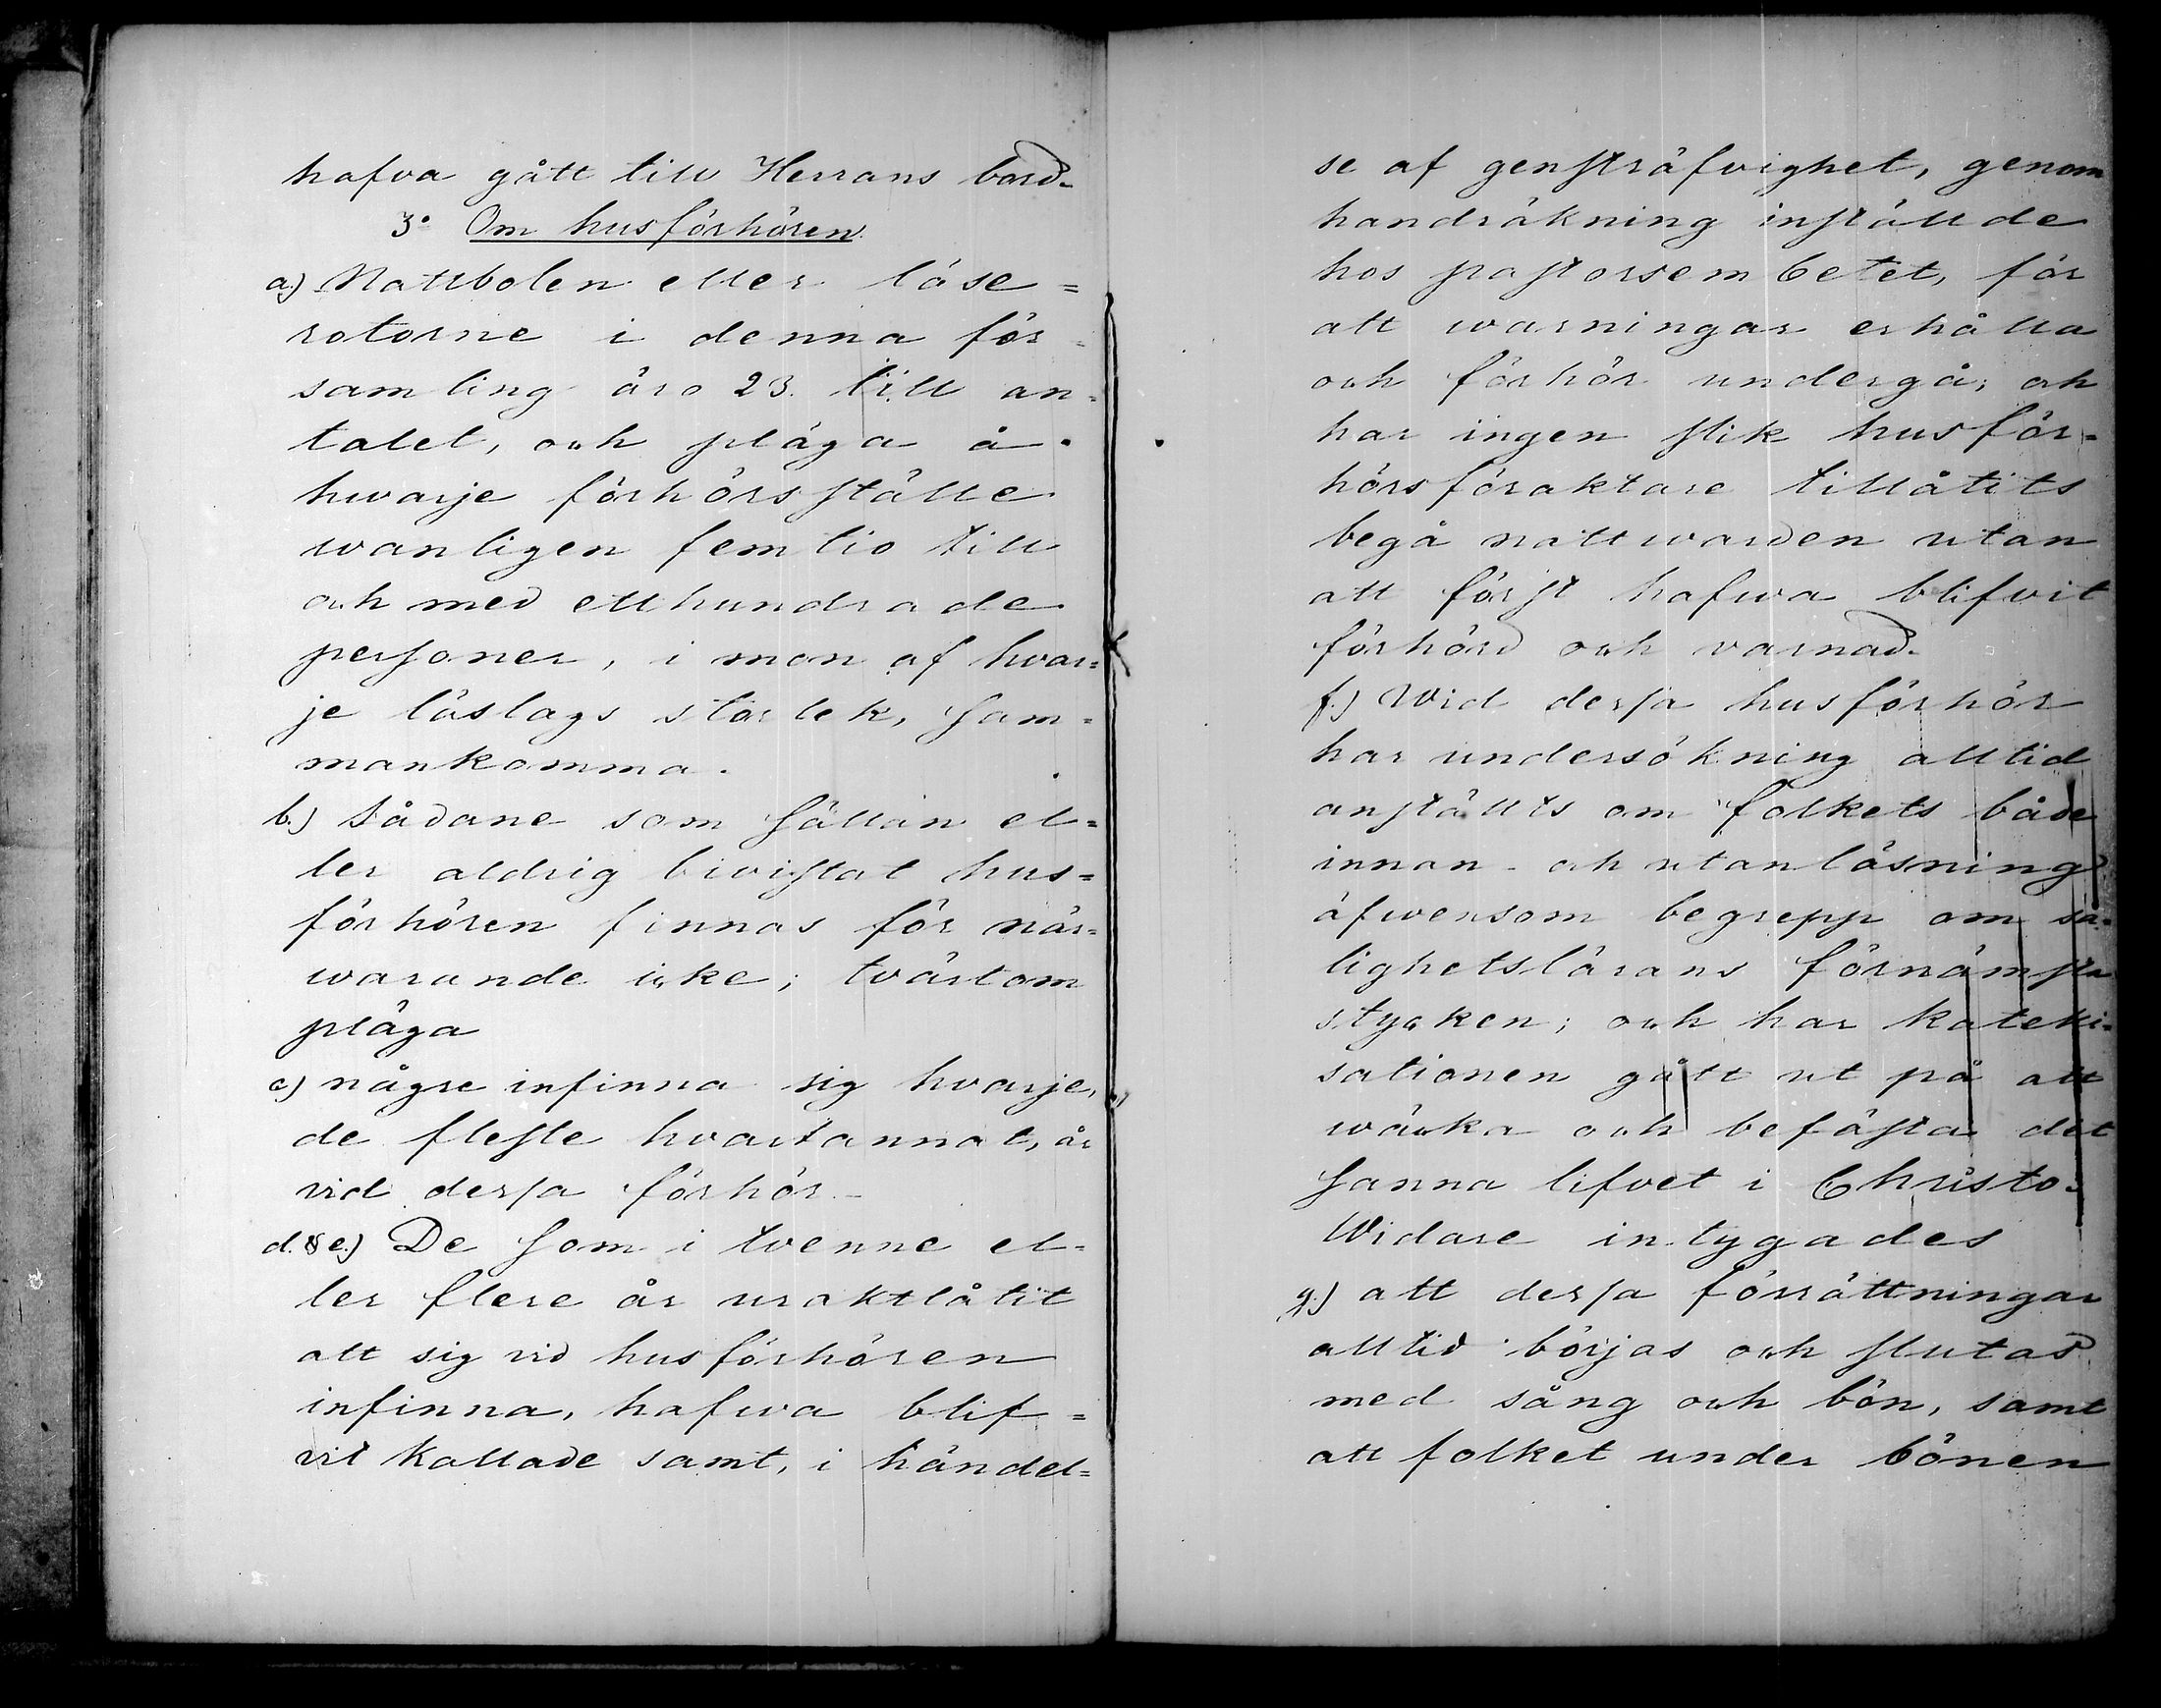 hafva gått till Herrans bord.
3º Om husförhören.
a.) Mattbolen eller läse=
rotorne i denna för=
samling äro 23. till an=
talet, och pläga å
hwarje förhörsställe
wanligen femtio till
och med etthundrade
personer, i mon af hvar=
je läslags storlek, sam=
mankomma.
b.) Sådane som sällan el=
ler aldrig bivistat hus=
förhören finnas för när=
warande icke; tvärtom
pläga
c.) någre infinna sig hvarje,
de fleste hvartannat, år
vid dessa förhör.-
d. & e.) De som i tvenne el=
ler flere år uraktlåtit
att sig vid husförhören
infinna, hafwa blif=
vit kallade samt, i händel=
se af gensträfvighet, genom
handräkning inställde
hos pastorsembetet, för
att warningar erhålla
och förhör undergå; och
har ingen slik husför=
hörsföraktare tillåtits
begå nattwarden utan
att först hafwa blifvit
förhörd och varnad.
f.) Wid dessa husförhör
har undersökning alltid
anställts om folkets både
innan- och utanläsning
äfwensom begrepp om sa=
lighetslärans förnämsta
stycken; och har kateki=
sationen gått ut på att
wäcka och befästa det
sanna lifvet i Christo.
Widare intygades
g.) att dessa förrättningar
alltid börjas och slutas
med sång och bön, samt
att folket under bönen